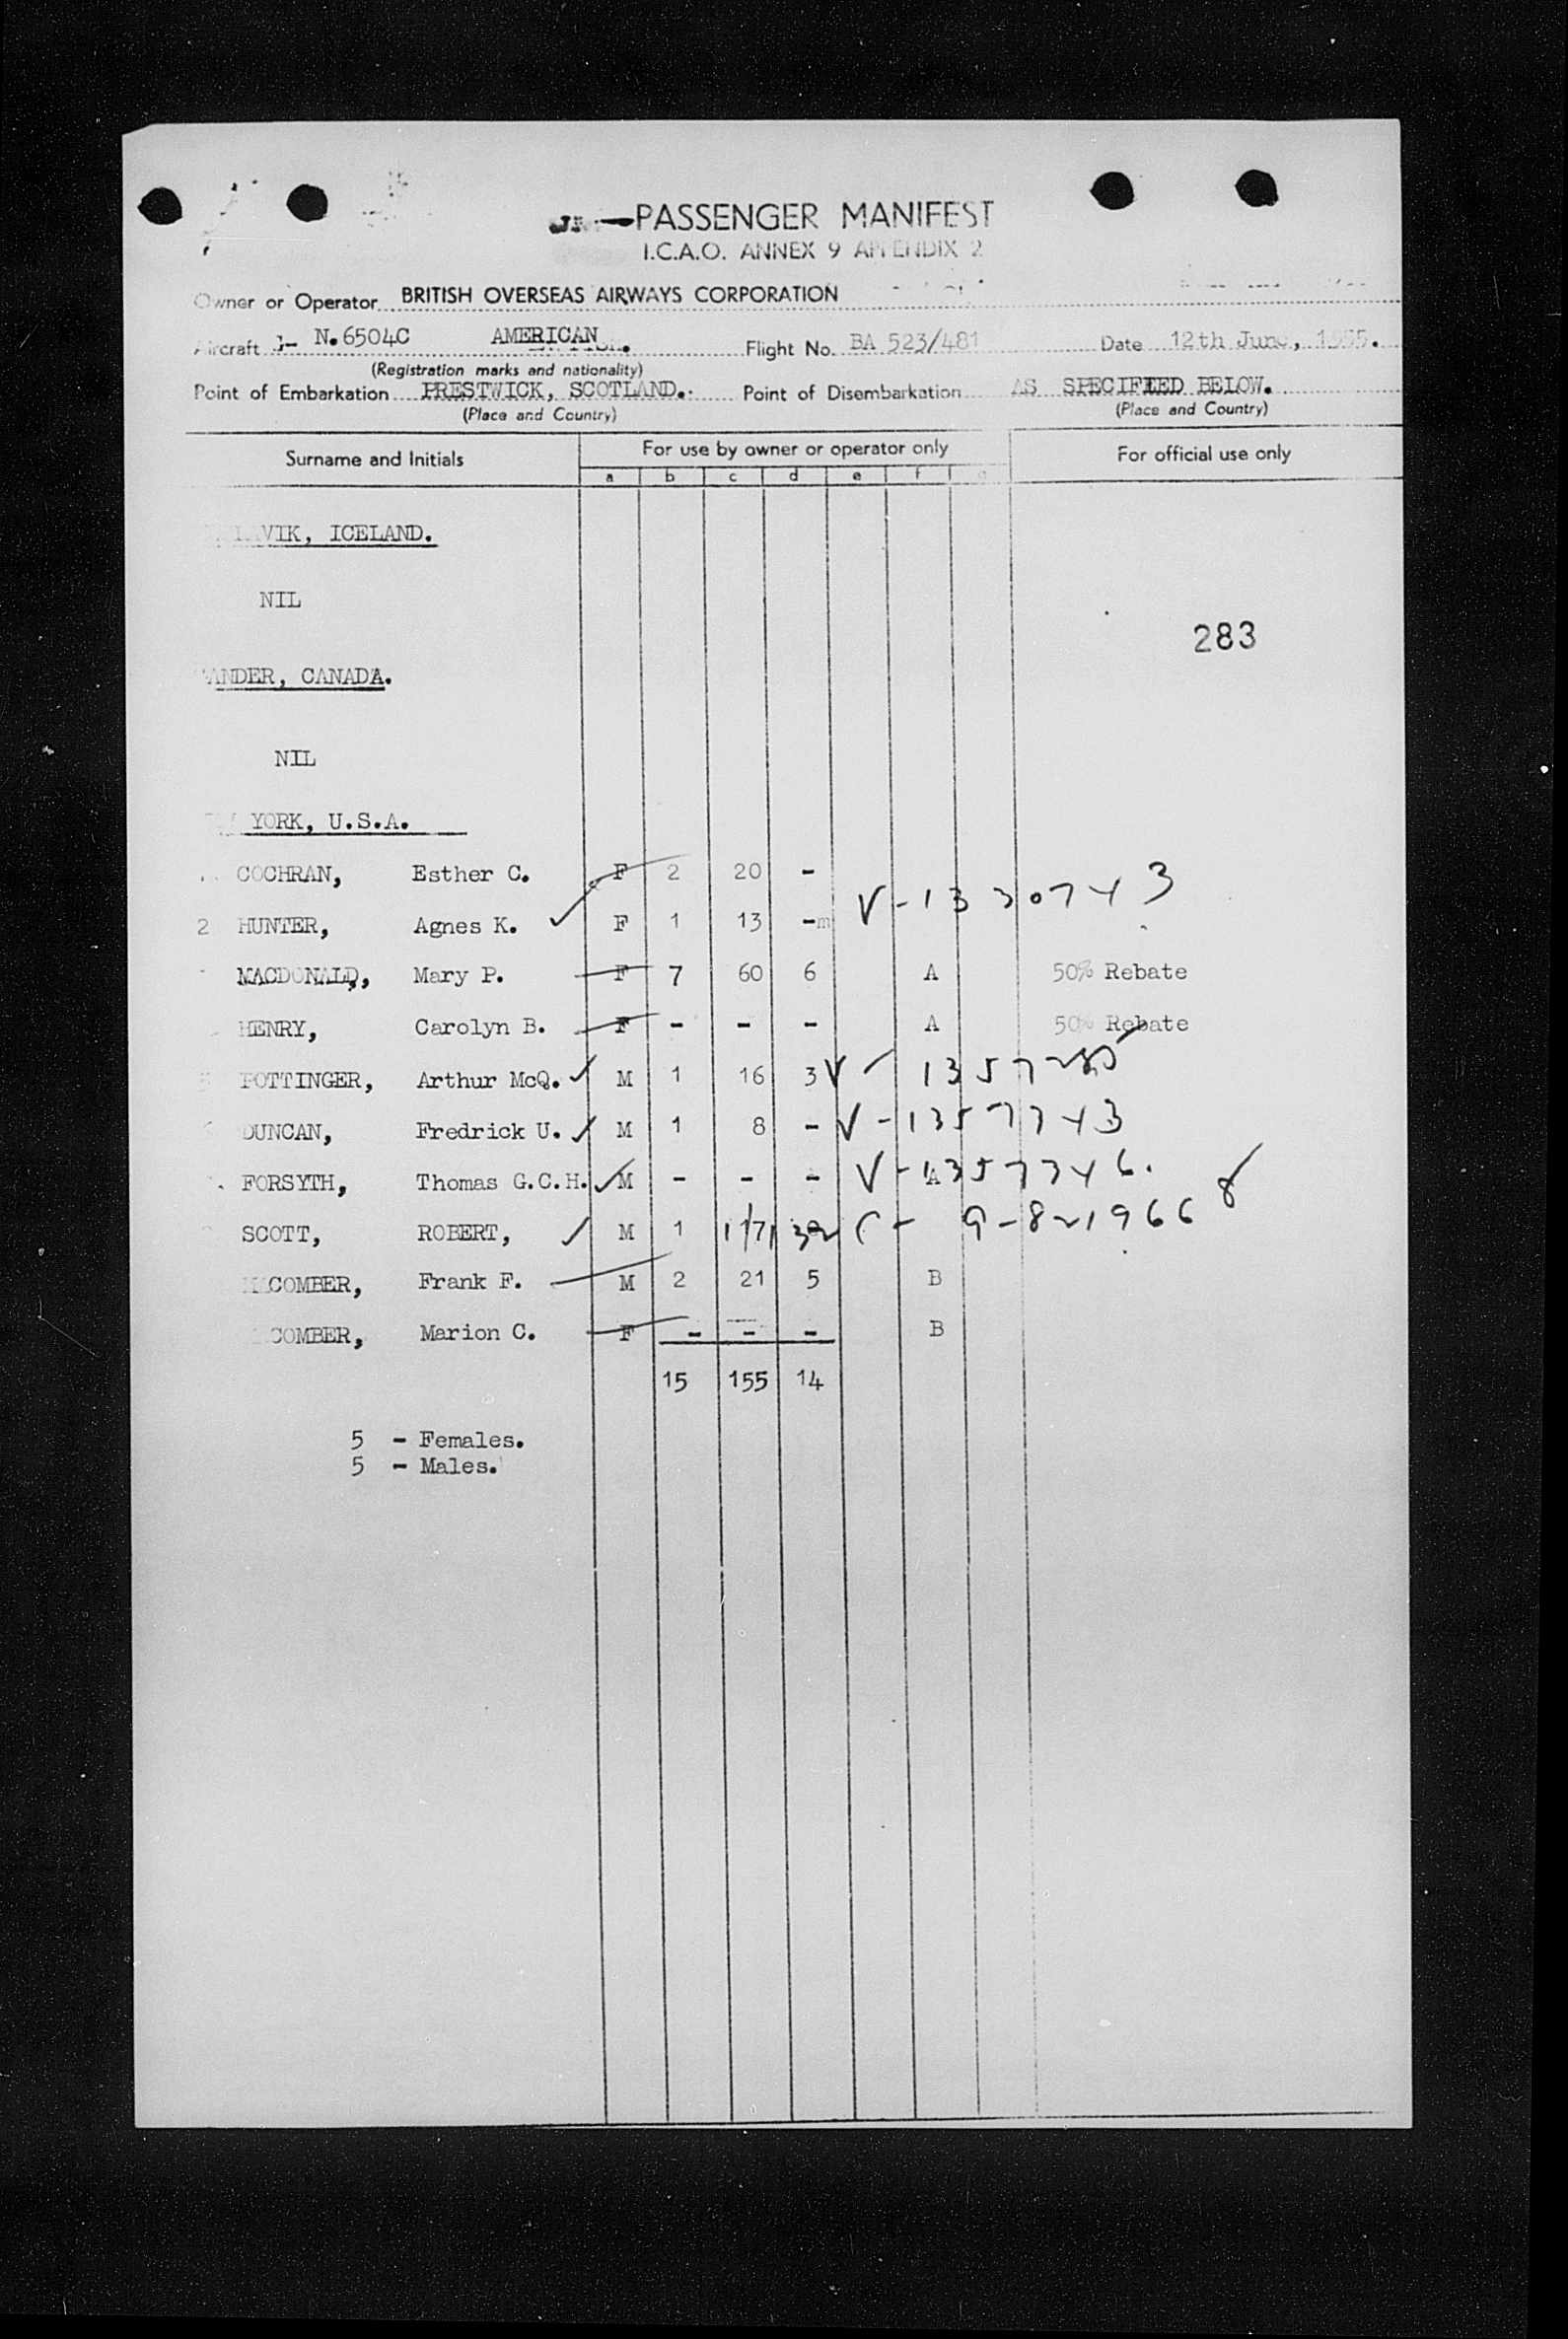 PASSENGER MANIFEST
I.C.A.O. ANNEX 9 APPENDIX 2
Owner or Operator BRITISH OVERSEAS AIRWAYS CORPORATION
Aircraft G- N.6504C AMERICAN. Flight No. BA 523/481 Date 12th June, 1955.
(Registration marks and nationality)
Point of Embarkation PRESTWICK, SCOTLAND. Point of Disembarkation AS SPECIFIED BELOW.
(Place and Country) (Place and Country)
Surname and Initials For use by owner or operator only For official use only
a b c d e f g
LAVIK, ICELAND.
NIL
283
GANDER, CANADA.
NIL
YORK, U.S.A.
COCHRAN, Esther C. F 2 20 -
2 HUNTER, Agnes K. F 1 13 - V-1330743
MACDONALD, Mary P. F 7 60 6 A 50% Rebate
HENRY, Carolyn B. F - - - A 50% Rebate
POTTINGER, Arthur McQ. M 1 16 3 V-
DUNCAN, Fredrick U. M 1 8 - V-1357743
FORSYTH, Thomas G.C.H. M - - - A V-1357746.
SCOTT, ROBERT, M 1 17
COMBER, Frank F. M 2 21 5 B
COMBER, Marion C. F - - - B
15 155 14
5 - Females.
5 - Males.